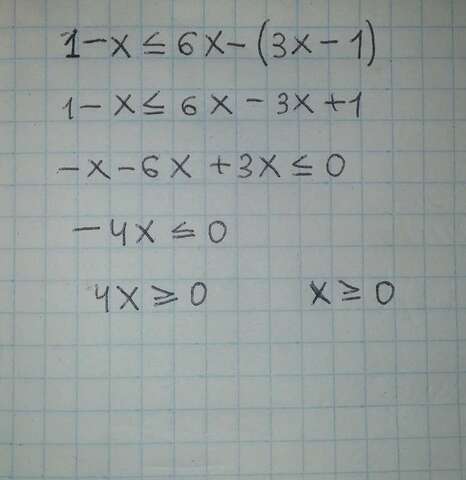 1-x≤6x-(3x-1)
1-x≤6x-3x+1
-x-6x+3x≤0
-4x≤0
4x≥0 x≥0